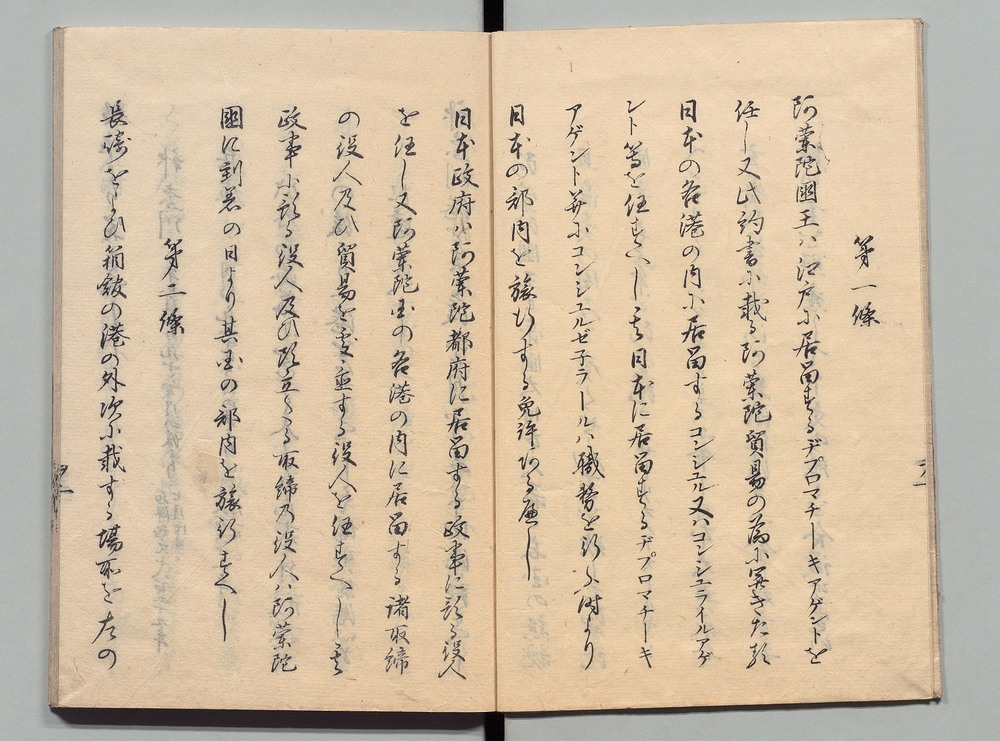 第一條
阿蘭陀國王ハ江戸に居留するヂプロマチーキアゲントを
任し又此約書に載る阿蘭陀貿易の為に開きたる
日本の各港の内に居留するコンシユル又ハコンシユライルアゲ
ント等を任すへし其日本に居留するヂプロマチーキ
アゲント并にコンシユルゼ子ラールハ職務を行ふ時より
日本の部内を旅行する免許ある可し
日本政府ハ阿蘭陀都府に居留する政事に預る役人
を任し又阿蘭陀国の各港の内に居留する諸取締
の役人及ひ貿易を處置する役人を任すへし其
政事に預る役人及ひ頭立たる取締の役人ハ阿蘭陀
國に到着の日より其国の部内を旅行すへし
第二條
長崎をよひ箱館の港の外次に載する場所を左の